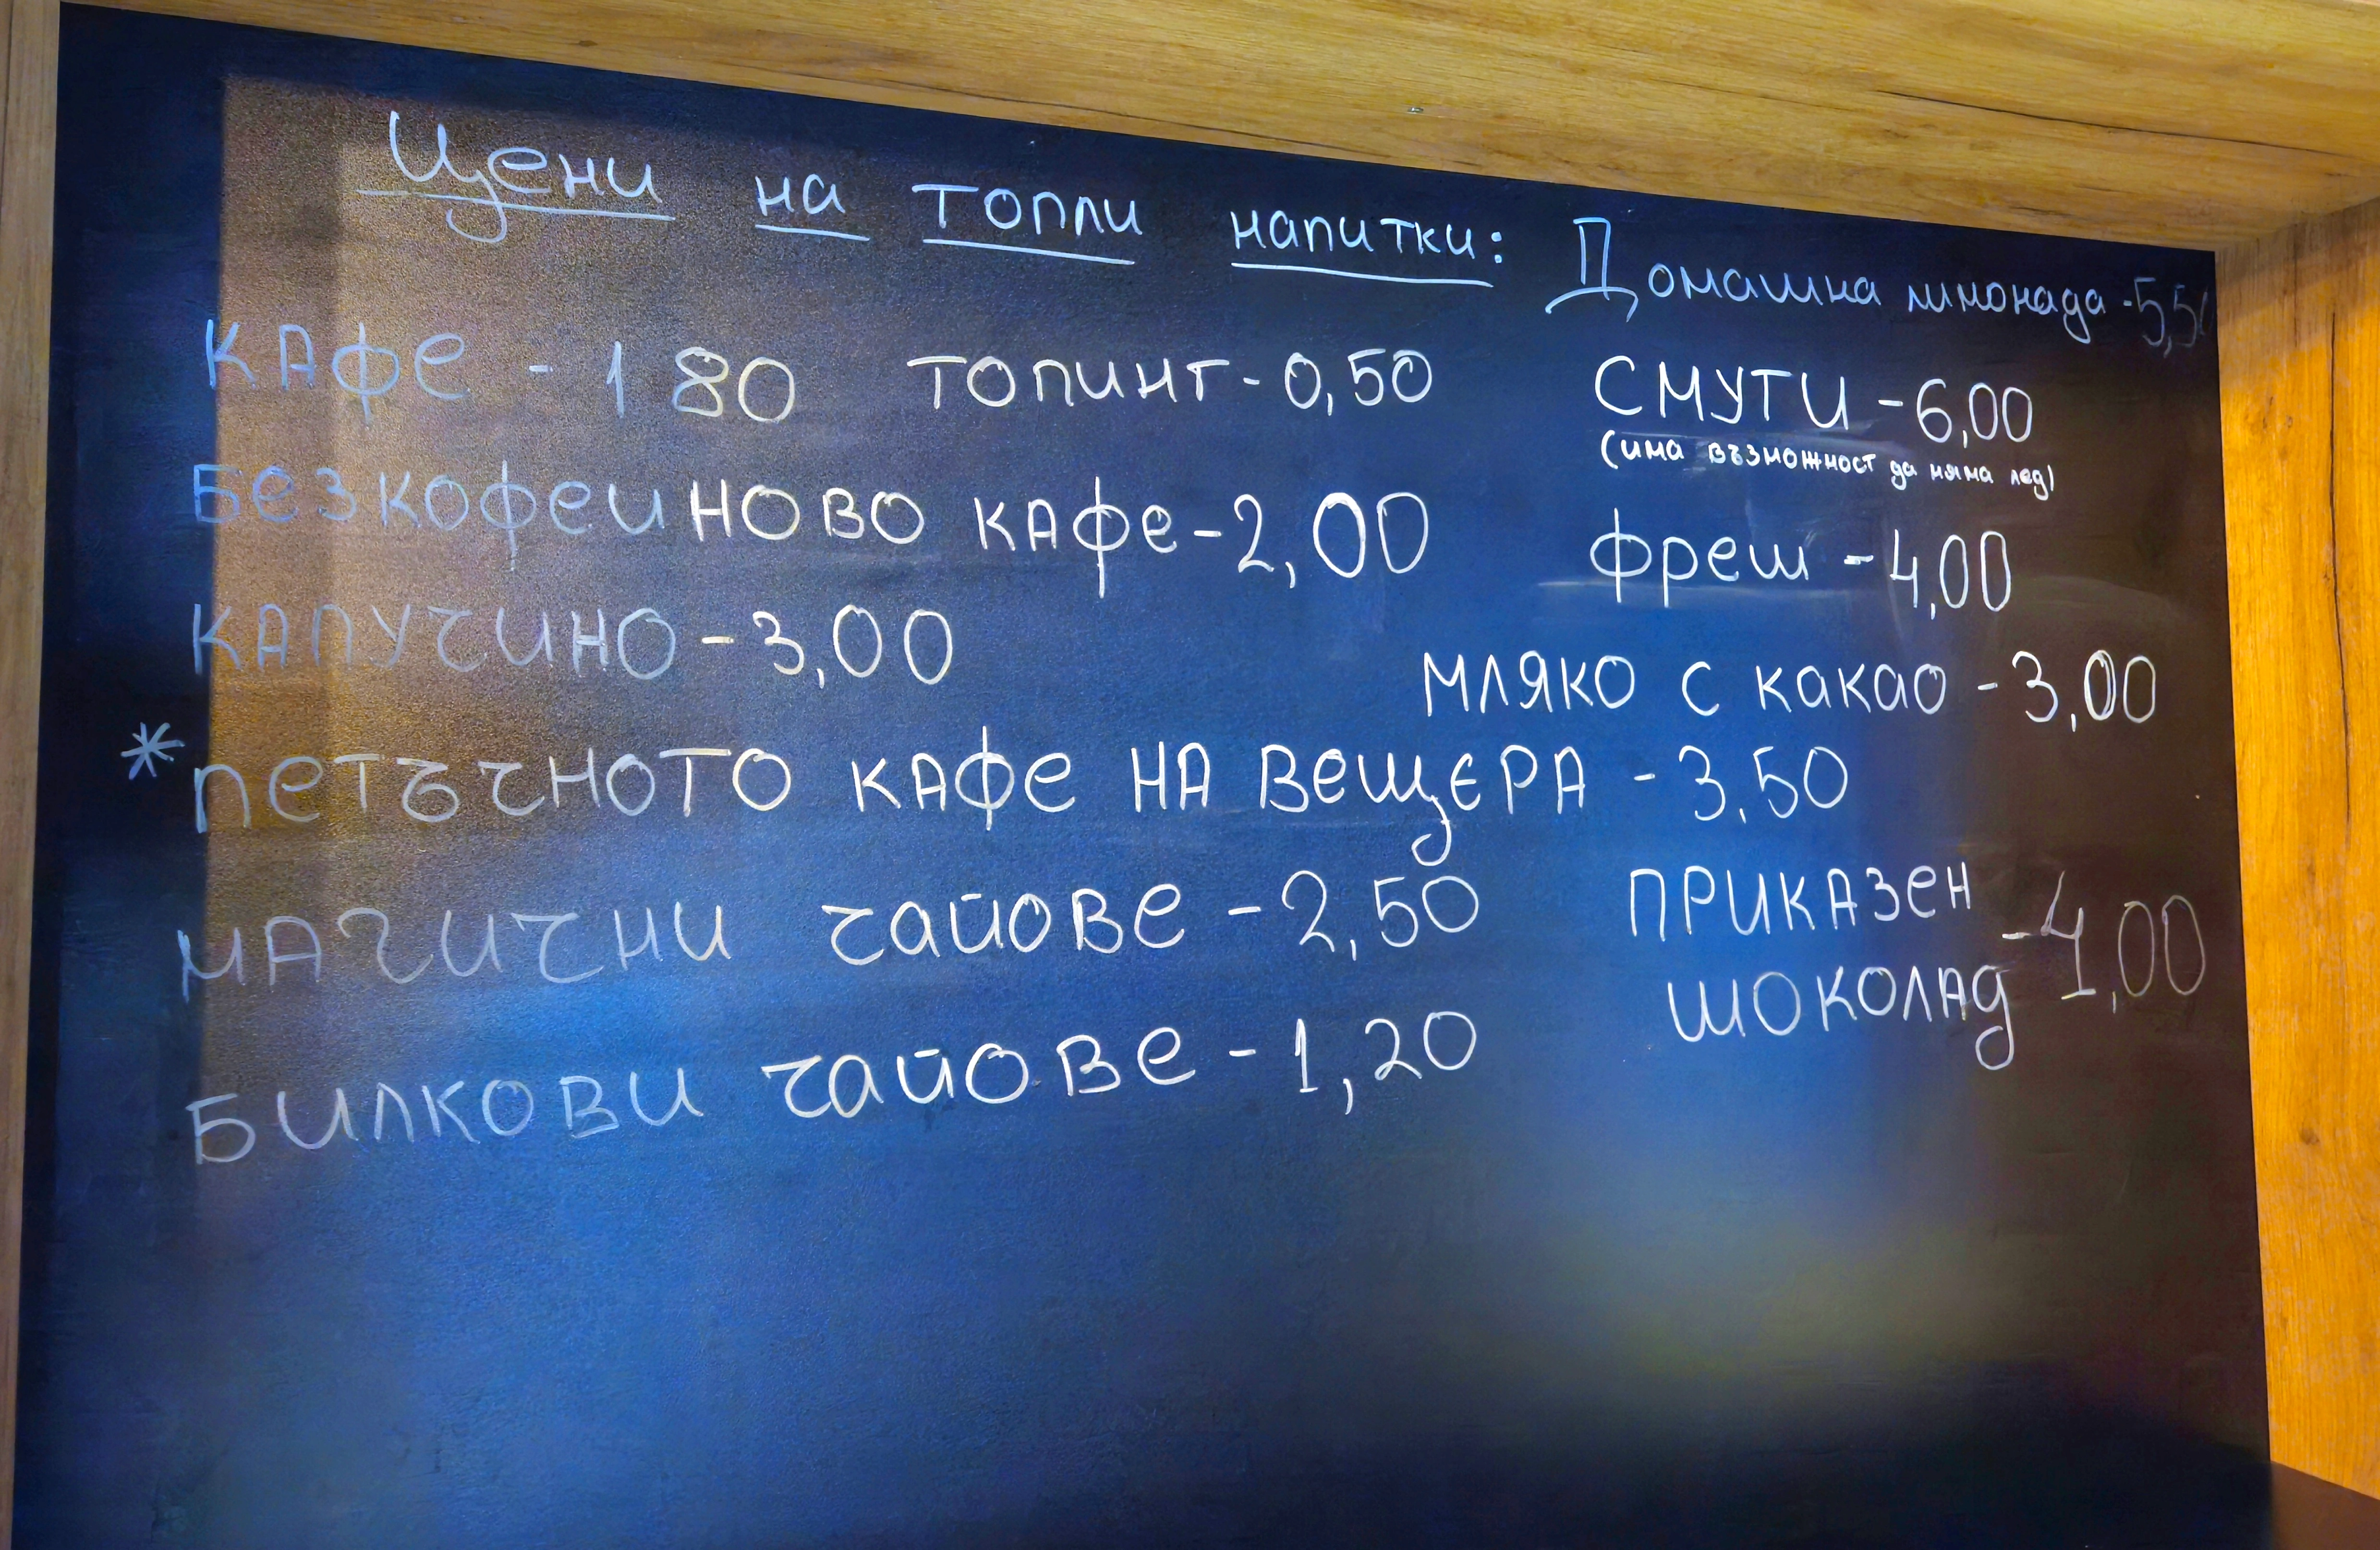 Цени на топли напитки:
КАФЕ - 1 80 ТОПИНГ - 0,50
БЕЗКОФЕИНОВО КАФЕ - 2,00
КАПУЧИНО - 3,00
* ПЕТЪЧНОТО КАФЕ НА ВЕЩЕРА - 3,50
МАГИЧНИ ЧАЙОВЕ - 2,50
БИЛКОВИ ЧАЙОВЕ - 1,20
Домашна лимонада - 5,50
СМУТИ - 6,00
(има възможност да няма лед)
фреш - 4,00
МЛЯКО С КАКАО - 3,00
ПРИКАЗЕН
ШОКОЛАД - 4,00